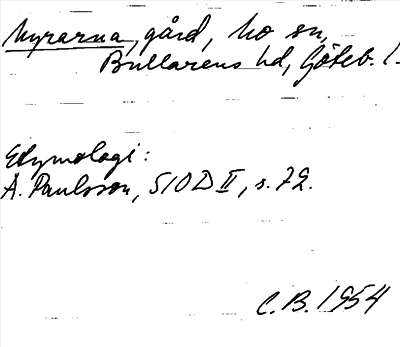 Myrarna, gård, Mo sn,
Bullarens hd, Göteb. l.
Etymologi:
A. Paulsson, SIOD II, s. 72.
C.B. 1954